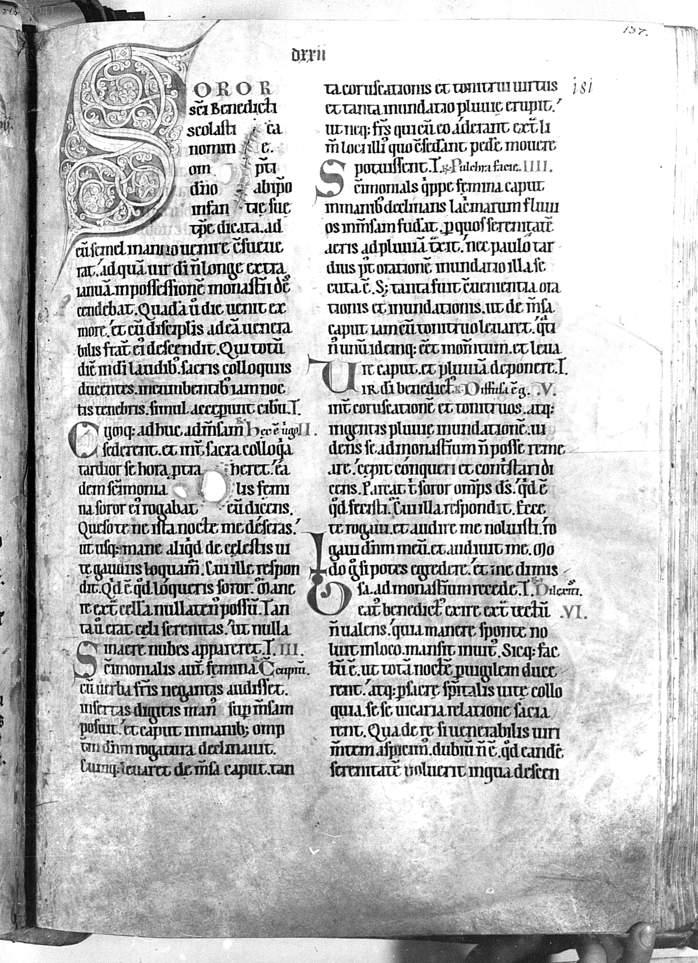 dxxii
157.
isi
SOROR
sc̄i Benedicti
scolasti ca
nomin e.
om pt̄i
dn̄o ab īpo
infan tie sue
tp̄e dicata. ad
eū semel in anno uenire c̄sueue
rat. ad quā uir di n̄ longe extra
ianuā in possessionē monastíi de
cendebat. Quadā ū die uenit ex
more. et cū discipl̄is ad eā uenera
bilis frat̄ ei descendit. Qui totū
diē in di laudib; sacris colloquiis
ducentes. incumbentib; iam noc
tis tenebris. simul acceperunt cibū. I.
Cūq: adhuc ad m̄sam Hec ē ūgo II.
sederent. et int̄ sacra colloq̄a
tardior se hora ptra heret. ea
dem sc̄imonia lis femi
na soror ei rogabat eū dicens.
Queso te ne ista nocte me deseras.
ut usq: mane aliq̄d de celestis ui
te gaudiis loquam̄. Cui ille respon
dit. Qd ē qd loqueris soror. Mane
re ext̄ cella nullaten possū. Tan
ta ū erat celi serenitas. ut nulla
in aere nubes appareret. I. III.
Sc̄imonialis aut̄ femina Cc̄upiu.
cū uerba fr̄is negantis audisset.
insertas digitis man sup m̄sam
posuit. et caput in manib; omp
tn̄ dn̄m rogatura declinauit.
Cumq; leuaret de m̄sa caput. tan
ta coruscationis et tonitrui uirtus
et tanta inundatio pluuie erupit.
ut neq: fr̄s qui cū eo aderant ext̄ li
m̄ loci illi quo c̄sedant pede mouere
potuissent. I. Pulchra facie. IIII.
Sc̄imonialis q̄ppe femina caput
in manib declinans lac̄marum fluui
os in m̄sam fudat. p quos serenitatē
aeris ad pluuiā t̄xit. nec paulo tar
dius p̄t orationē inundatio illa se
cuta ē. S; tanta fuit c̄uenientia ora
tionis et inundationis. ut de m̄sa
caput iam cū tonitruo leuaret. q̄ti
n̄ unū idemq: eēt mom̄tum. et leua
re caput. et pluuiā deponere. I.
VIR di benedict Diffusa ē g. V.
int̄ coruscationē et tonitruos. atq:
ingentis pluuie inundationē. ui
dens se ad monast̄ium n̄ posse reme
are. cepit conqueri et cont̄stari di
cens. Parcat t̄ soror omps ds̄. q̄d ē
qd fecisti. Cui illa respondit. Ecce
te rogaui. et audire me noluisti. ro
gaui dn̄m meū. et audiuit me. Mo
do g̊ si potes egredere. et me dimis
sa. ad monast̄ium recede. I. Dilexisti.
Id eat̄ benedict exire ext̄ tectū VI.
n̄ ualens. quia manere sponte no
luit in loco. mansit inuit̄. Sicq: fac
tū ē. ut totā noctē puigilem duce
rent. atq: p sacre spiritalis uite collo
quia. sese uicaria relatione sacia
rent. Qua de re si uenerabilis uiri
m̄tem aspicim̄. dubiū n̄ ē. q̄d eandē
serenitatē uoluerit in qua descen